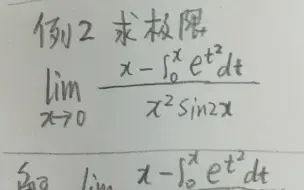 例2 求极限
lim x→0 (x - ∫₀ˣ e^{t²}dt) / (x² sin2x)
解 lim x - ∫₀ˣ e^{t²}dt